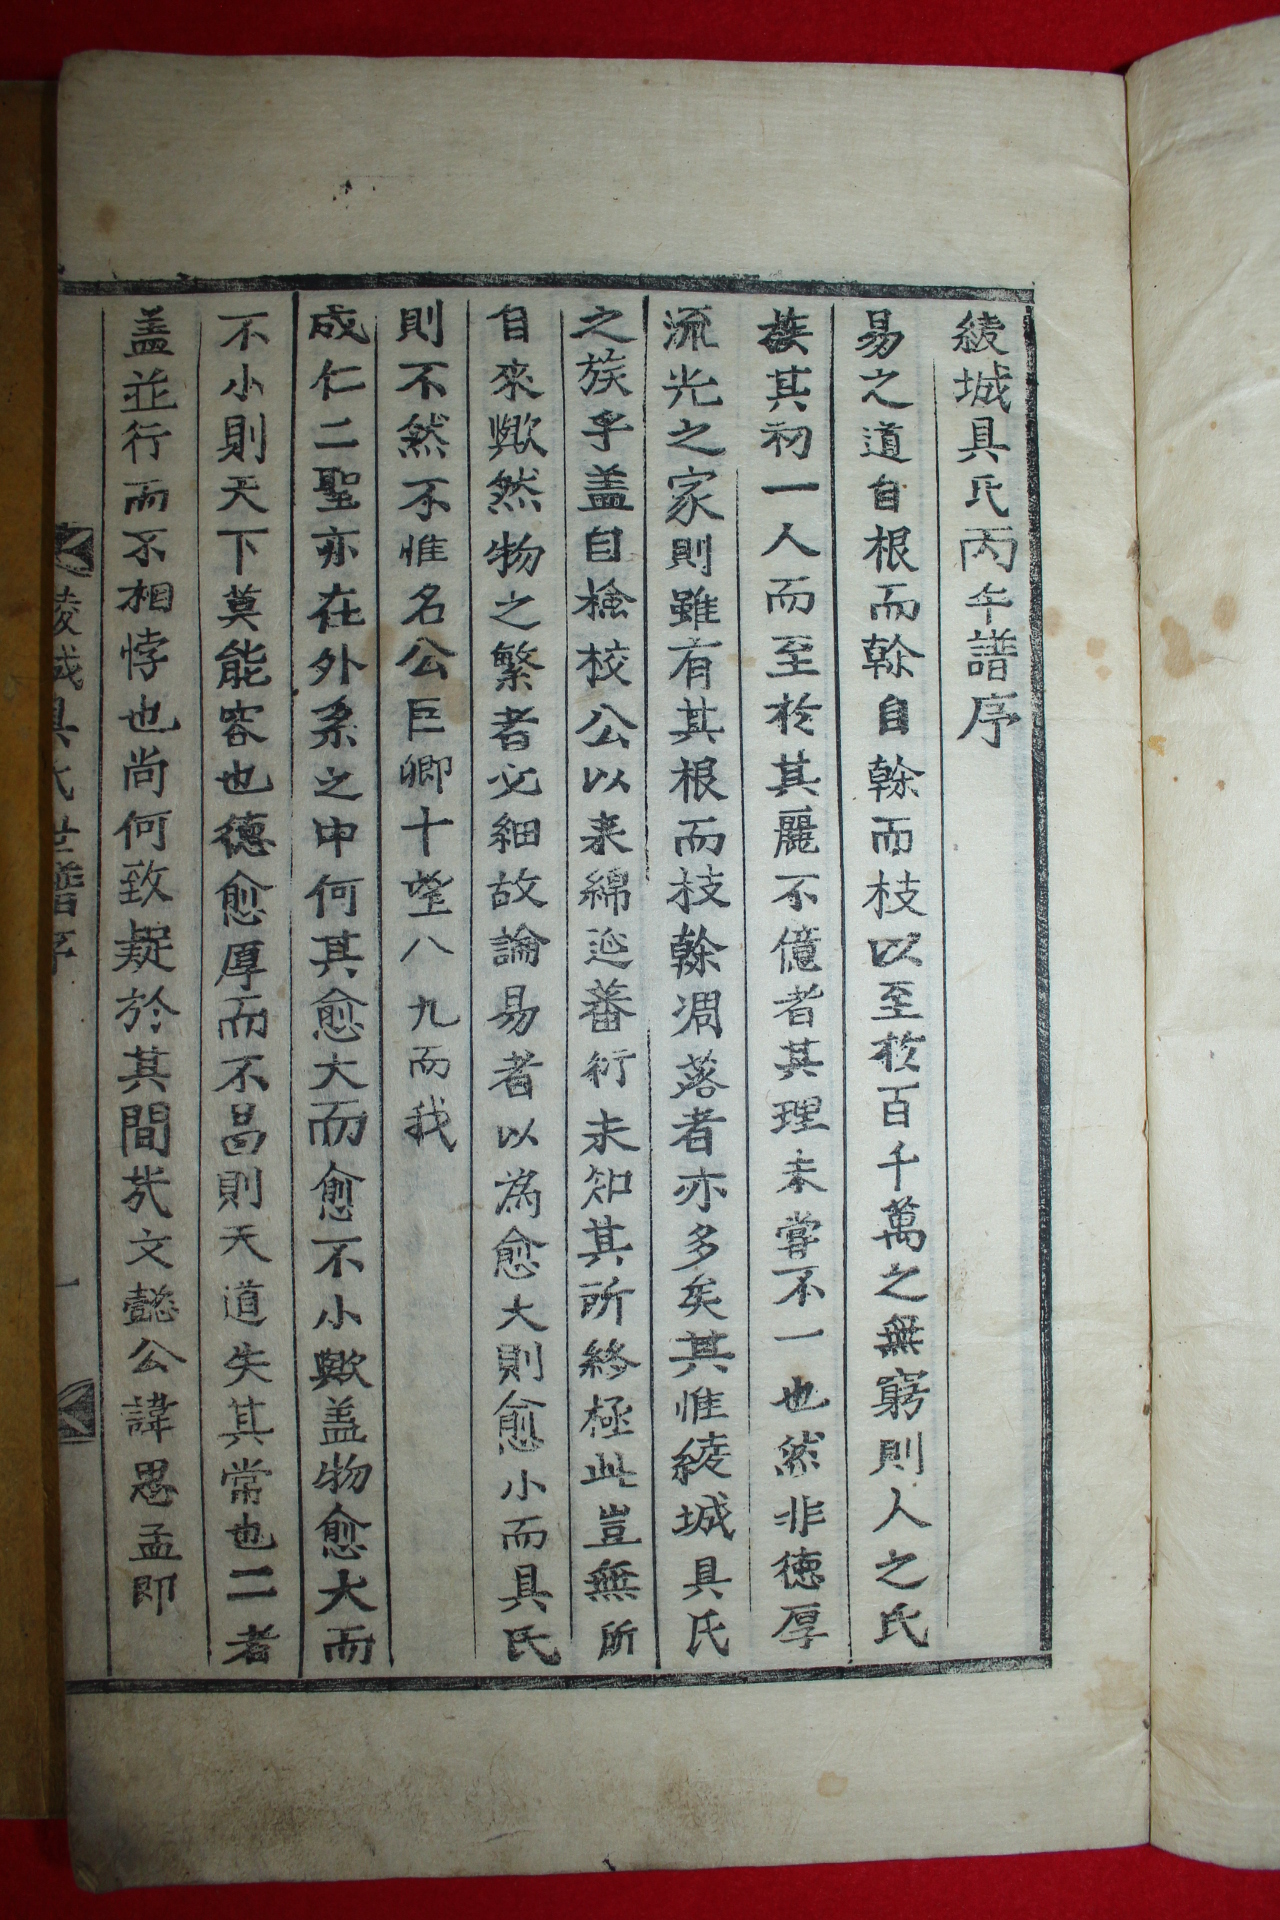 綾城具氏丙午譜序
易之道自根而榦自榦而枝以至於百千萬之無窮則人之氏
族其初一人而至於其麗不億者其理未嘗不一也然非德厚
流光之家則雖有其根而枝榦凋落者亦多矣其惟綾城具氏
之族乎盖自檢校公以来綿延蕃衍未知其所終極此豈無所
自來歟然物之繁者必細故論易者以為愈大則愈小而具氏
則不然不惟名公巨卿十望八九而我
成仁二聖亦在外系之中何其愈大而愈不小歟盖物愈大而
不小則天下莫能容也德愈厚而不昌則天道失其常也二者
盖並行而不相悖也尚何致疑於其間哉文懿公諱思孟即
綾城具氏世譜序 一